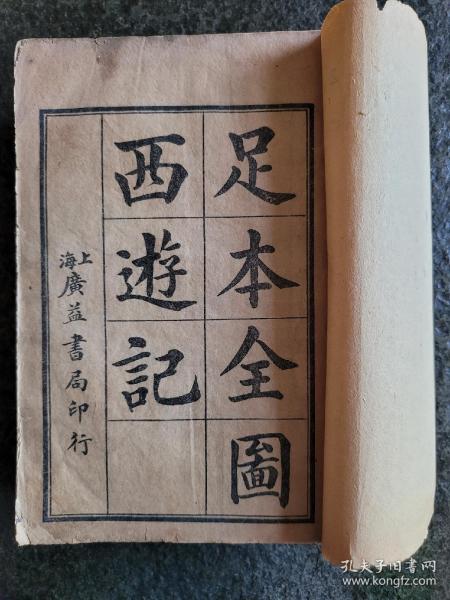 足本全圖
西遊記
上海廣益書局印行
孔夫子旧书网
www.kongfz.com